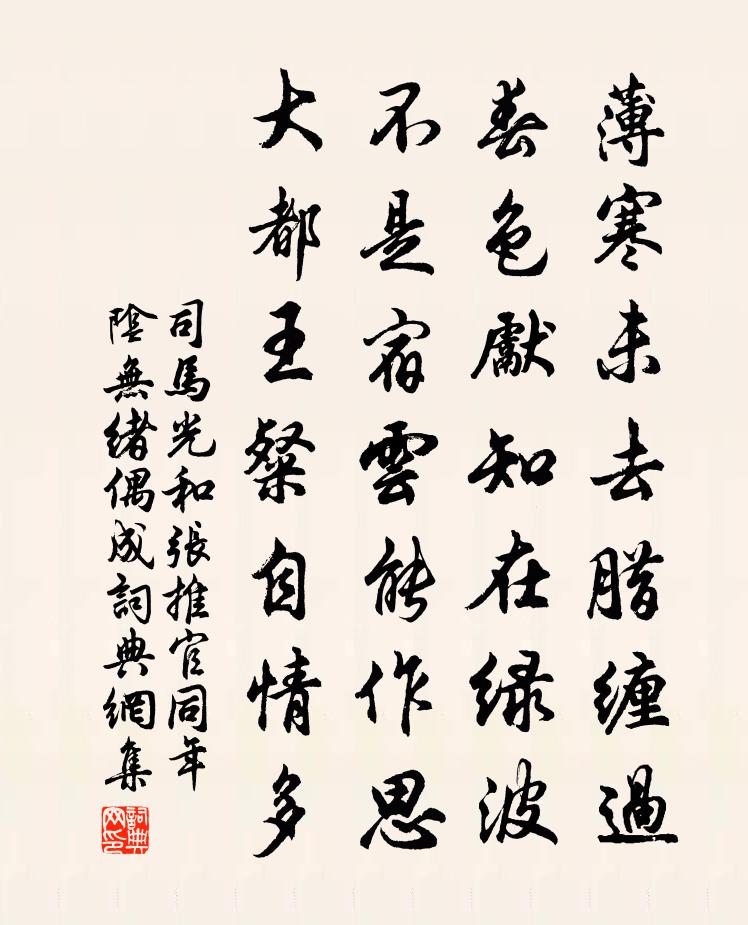 薄寒未去腊缠過
春色獻知在緑波
不是宿雲能作思
大都王粲自情多
司馬光和張推官同年
陰無緒偶成詞典網集
詞典网印